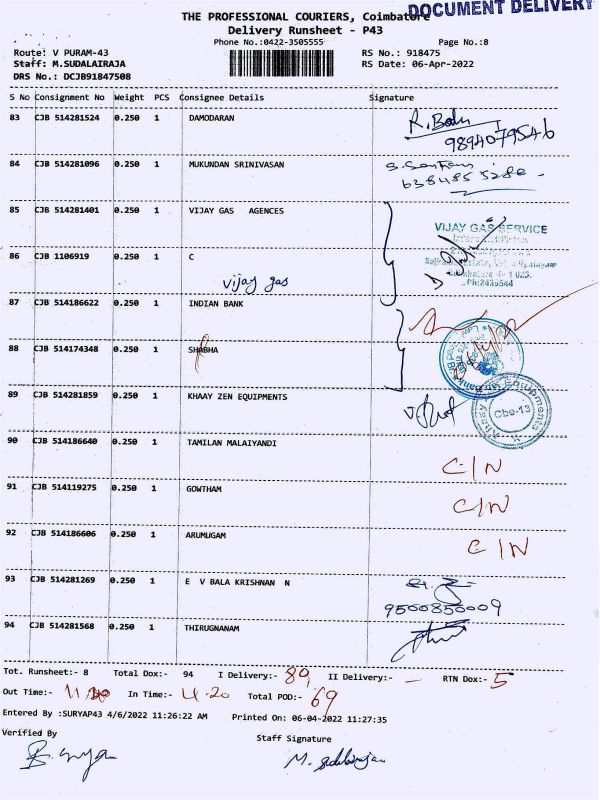 DOCUMENT DELIVERY
THE PROFESSIONAL COURIERS, Coimbatore
Delivery Runsheet - P43
Phone No.:0422-3505555 Page No.:8
Route: V PURAM-43 RS No.: 918475
Staff: M.SUDALAIRAJA RS Date: 06-Apr-2022
DRS No.: DCJB91847508
S No Consignment No Weight PCS Consignee Details Signature
83 CJB 514281524 0.250 1 DAMODARAN
R. Babu
9894079546
84 CJB 514281096 0.250 1 MUKUNDAN SRINIVASAN
6384855280
85 CJB 514281401 0.250 1 VIJAY GAS AGENCES
VIJAY GAS SERVICE
86 CJB 1106919 0.250 1 C
Vijay gas
Ph:2439544
87 CJB 514186622 0.250 1 INDIAN BANK
88 CJB 514174348 0.250 1 SHABHA
89 CJB 514281859 0.250 1 KHAAY ZEN EQUIPMENTS
Khaay Zen Equipments
Cbe-13
90 CJB 514186640 0.250 1 TAMILAN MALAIYANDI
C/N
91 CJB 514119275 0.250 1 GOWTHAM
C/N
92 CJB 514186606 0.250 1 ARUMUGAM
C/N
93 CJB 514281269 0.250 1 E V BALA KRISHNAN N
9500850009
94 CJB 514281568 0.250 1 THIRUGNANAM
Tot. Runsheet:- 8 Total Dox:- 94 I Delivery:- 89 II Delivery:- - RTN Dox:- 5
Out Time:- 11.40 In Time:- 4.20 Total POD:- 69
Entered By :SURYAP43 4/6/2022 11:26:22 AM Printed On: 06-04-2022 11:27:35
Verified By Staff Signature
M. Sudalairajan